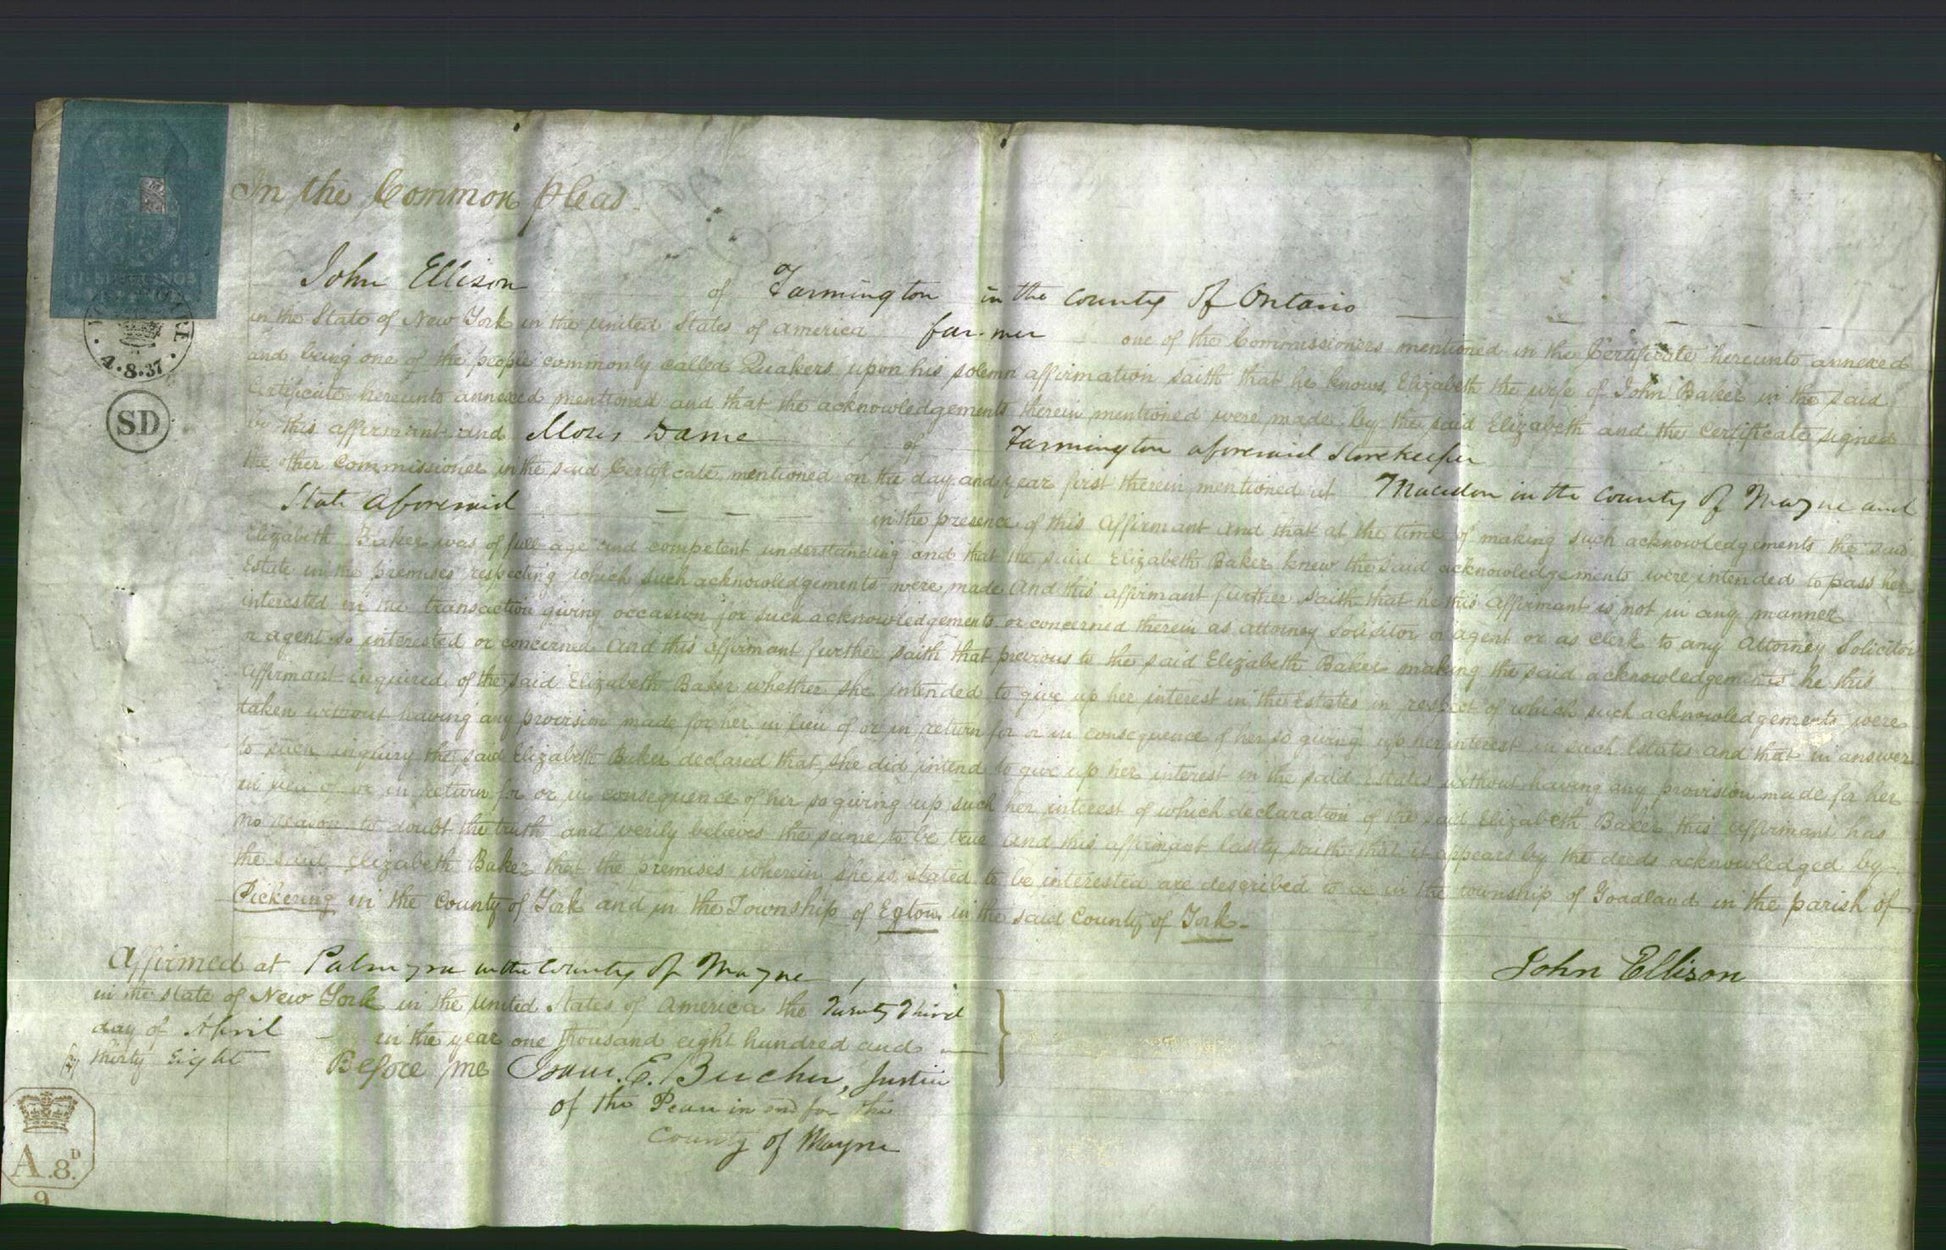 In the Common Pleas.
John Ellison of Farmington in the county of Ontario
in the State of New York in the united States of america farmer one of the Commissioners mentioned in the Certificate hereunto annexed
and being one of the people commonly called Quakers upon his solemn affirmation saith that he knows Elizabeth the wife of John Baker in the said
Certificate hereunto annexed mentioned and that the acknowledgements therein mentioned were made by the said Elizabeth and the Certificate signed
by this affirmant and of Farmington aforesaid Storekeeper
the other Commissioner in the said Certificate mentioned on the day and year first therein mentioned at Macedon in the County of Wayne and
State aforesaid in the presence of this Affirmant and that at the time of making such acknowledgements the said
Elizabeth Baker was of full age and competent understanding and that the said Elizabeth Baker knew the said acknowledgements were intended to pass her
Estate in the premises respecting which such acknowledgements were made And this affirmant further saith that he this affirmant is not in any manner
interested in the transaction giving occasion for such acknowledgements or concerned therein as attorney solicitor or agent or as clerk to any Attorney Solicitor
or agent so interested or concerned And this affirmant further saith that previous to the said Elizabeth Baker making the said acknowledgements he this
Affirmant inquired of the said Elizabeth Baker whether she intended to give up her interest in the Estates in respect of which such acknowledgements were
taken without having any provision made for her in lieu of or in return for or in consequence of her so giving up her interest in such Estates and that in answer
to such inquiry the said Elizabeth Baker declared that she did intend to give up her interest in the said estates without having any provision made for her
in lieu of or in return for or in consequence of her so giving up such her interest of which declaration of the said Elizabeth Baker this affirmant has
no reason to doubt the truth and verily believes the same to be true And this affirmant lastly saith that it appears by the deeds acknowledged by
the said Elizabeth Baker that the premises wherein she is stated to be interested are described to be in the township of Goadland in the parish of
Pickering in the County of York and in the Township of Egton in the said County of York.
Affirmed at Palmyra in the County of Wayne
in the State of New York in the United States of America the Twenty Third
day of April in the year one thousand eight hundred and
thirty Eight Before me E. Justice
of the Peace in and for the
County of Wayne
John Ellison
4.8.37
SD
A.8.D
9